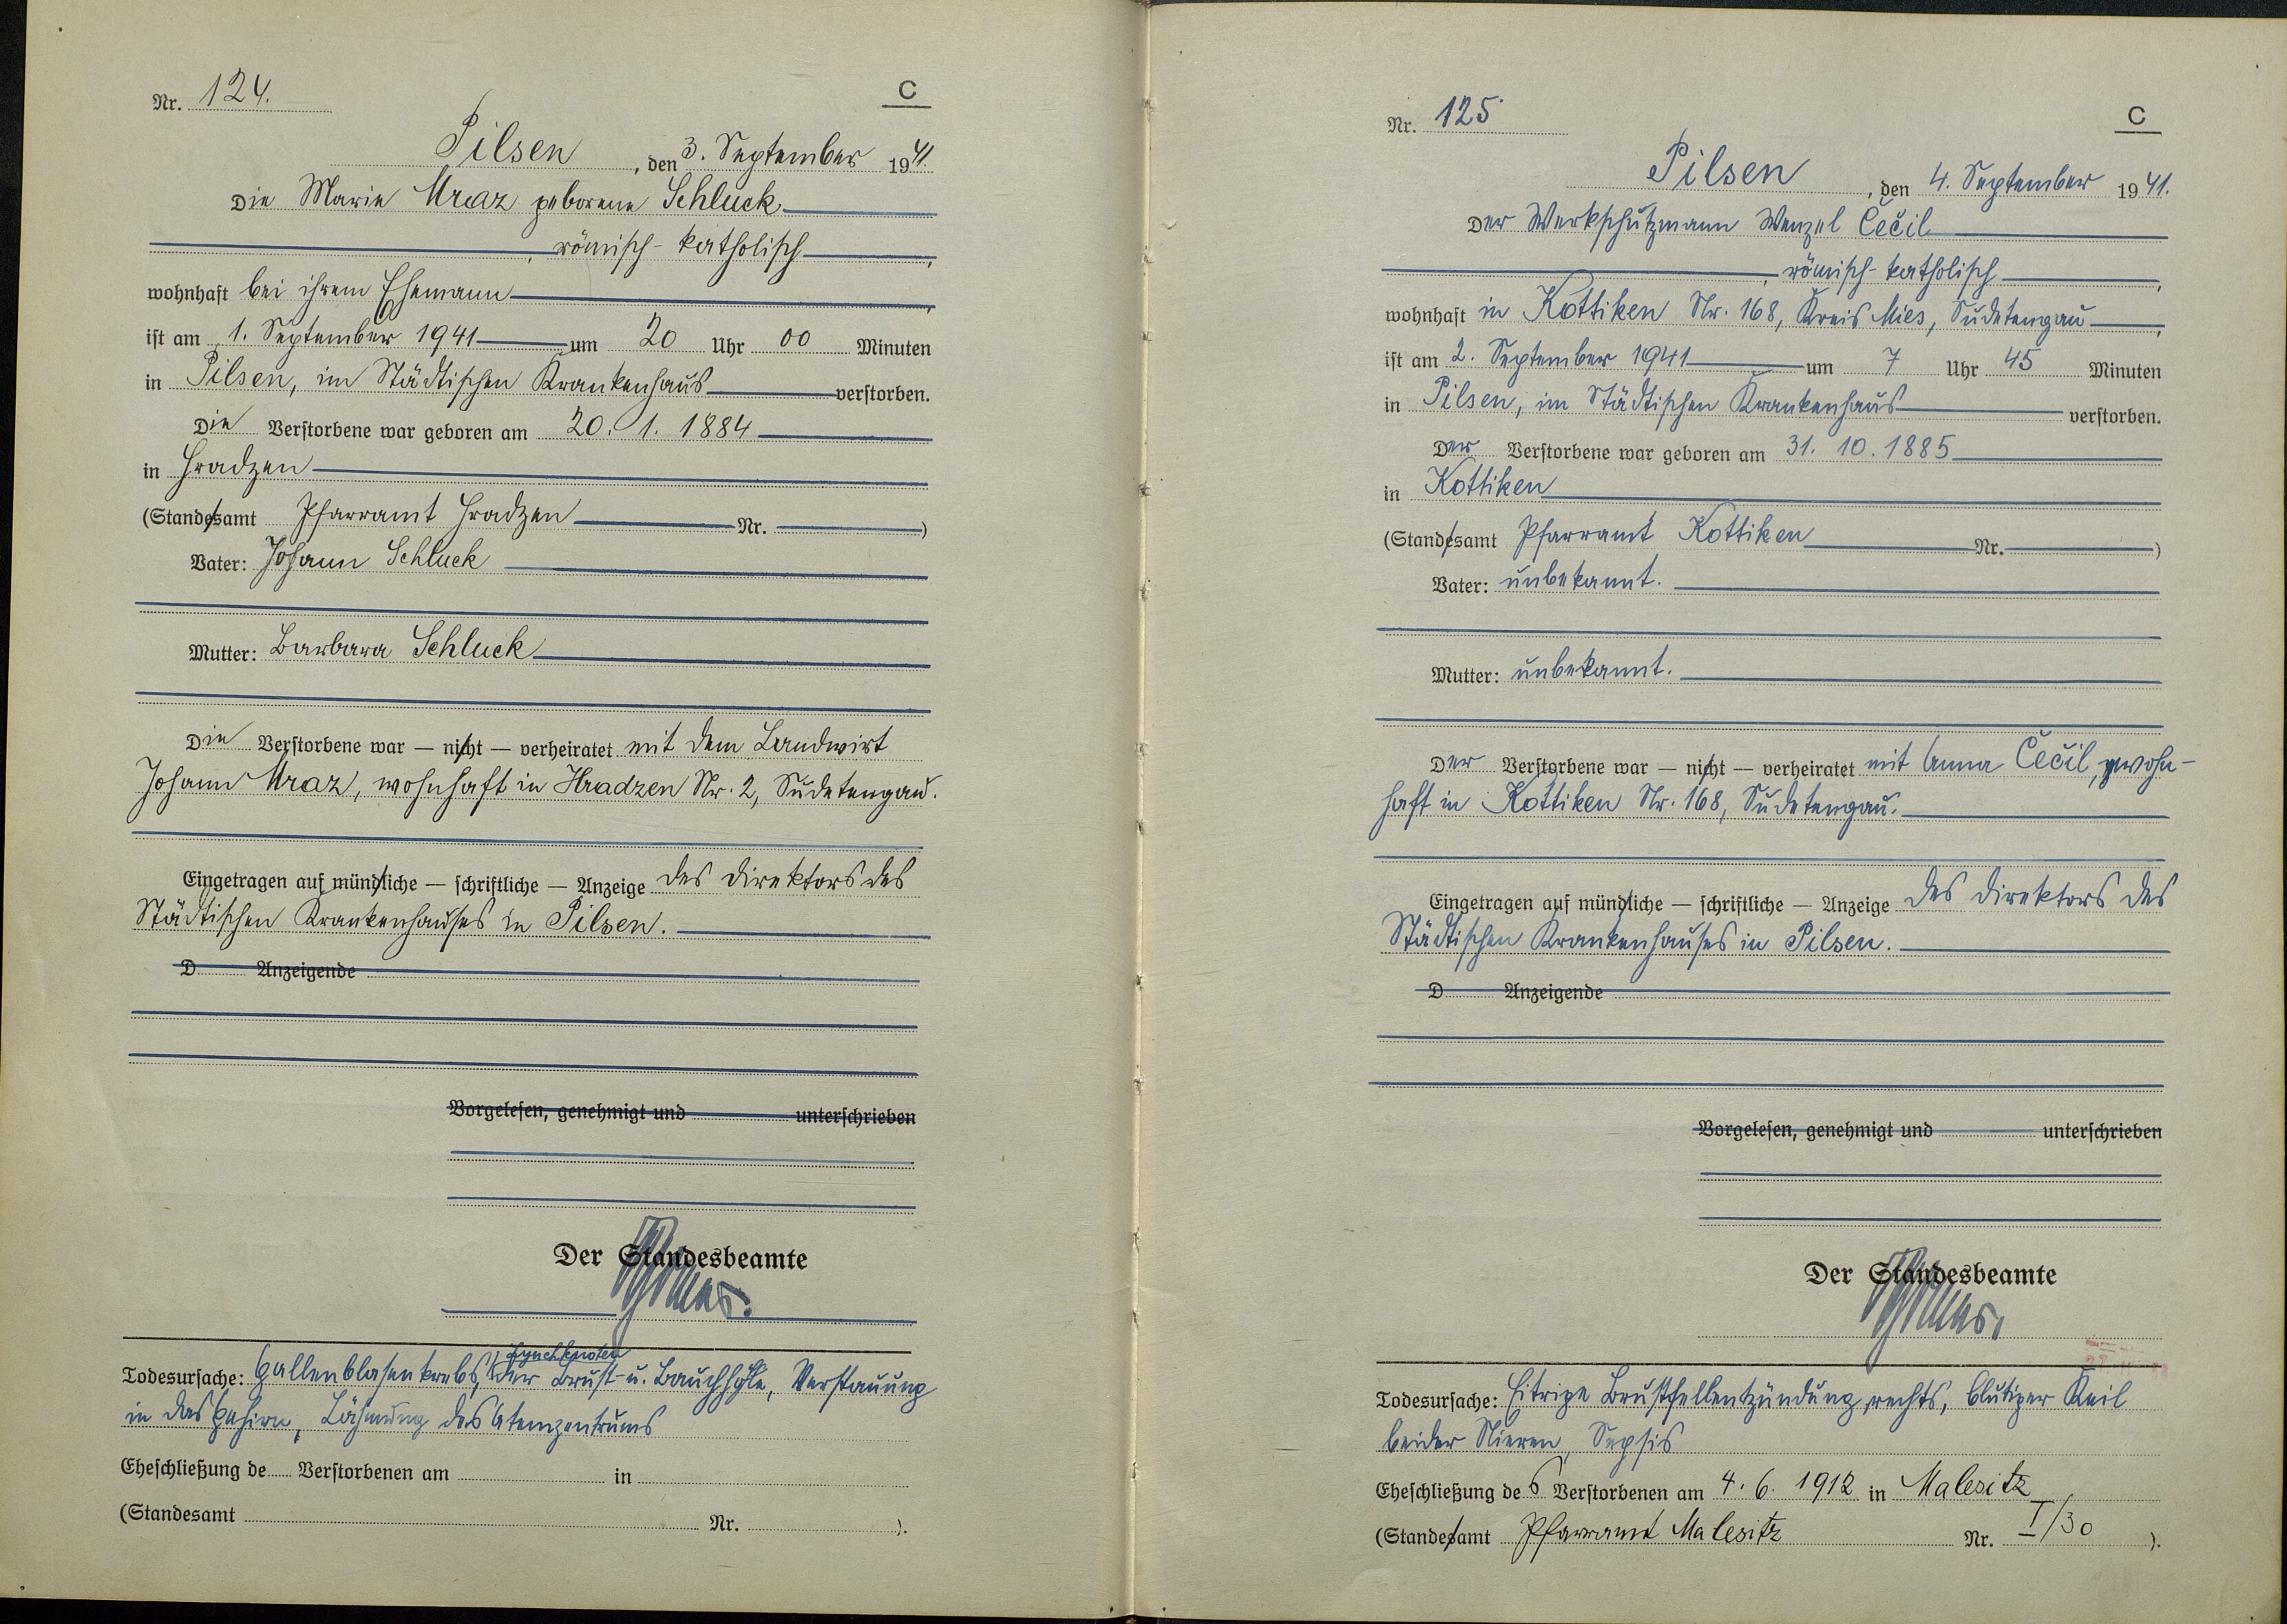 Nr. 124.
C
Pilsen, den 3. September 1941.
Die Marie Mraz geborene Schluck
, römisch-katholisch,
wohnhaft bei ihrem Ehemann,
ist am 1. September 1941 um 20 Uhr 00 Minuten
in Pilsen, im Städtischen Krankenhaus verstorben.
Die Verstorbene war geboren am 20. 1. 1884
in Hradzen
(Standesamt Pfarramt Hradzen Nr. )
Vater: Johann Schluck
Mutter: Barbara Schluck
Die Verstorbene war — nicht — verheiratet mit dem Landwirt
Johann Mraz, wohnhaft in Hradzen Nr. 2, Sudetengau.
Eingetragen auf mündliche — schriftliche — Anzeige des Direktors des
Städtischen Krankenhauses in Pilsen.
D Anzeigende
Vorgelesen, genehmigt und unterschrieben
Der Standesbeamte
Lymphknoten
Todesursache: Gallenblasenkrebs, der Brust- u. Bauchhöle, Verstauung
in das Gehirn, Lähmung des Atemzentrums
Eheschließung de Verstorbenen am in
(Standesamt Nr. ).
Nr. 125
C
Pilsen, den 4. September 1941.
Der Werkschutzmann Wenzel Čečil
, römisch-katholisch,
wohnhaft in Kottiken Nr. 168, Kreis Mies, Sudetengau,
ist am 2. September 1941 um 7 Uhr 45 Minuten
in Pilsen, im Städtischen Krankenhaus verstorben.
Der Verstorbene war geboren am 31. 10. 1885
in Kottiken
(Standesamt Pfarramt Kottiken Nr. )
Vater: unbekannt.
Mutter: unbekannt.
Der Verstorbene war — nicht — verheiratet mit Anna Čečil, wohn-
haft in Kottiken Nr. 168, Sudetengau.
Eingetragen auf mündliche — schriftliche — Anzeige des Direktors des
Städtischen Krankenhauses in Pilsen.
D Anzeigende
Vorgelesen, genehmigt und unterschrieben
Der Standesbeamte
Todesursache: Eitrige Brustfellentzündung rechts, blutiger Keil
beider Nieren, Sepsis
Eheschließung des Verstorbenen am 4. 6. 1912 in Malesitz
(Standesamt Pfarramt Malesitz Nr. I/30 ).